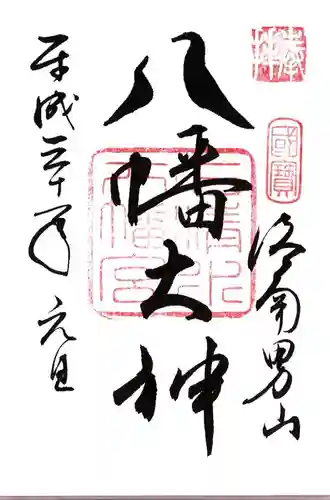 奉拝
國寶
洛南男山
八幡大神
石清水八幡宮
平成三十年元旦